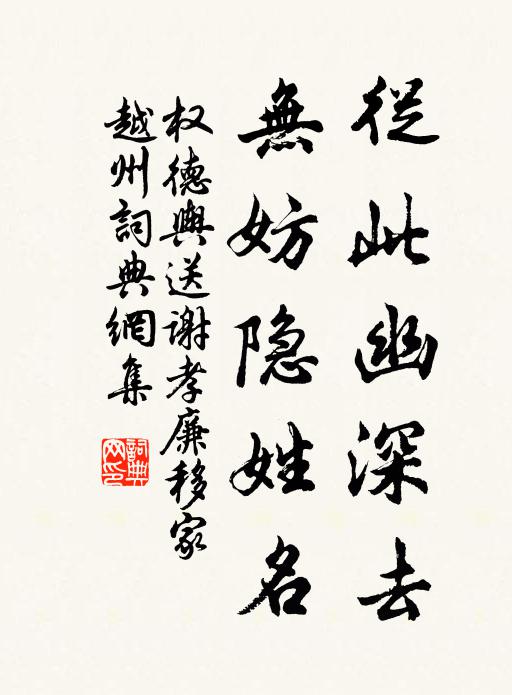 從此幽深去
無妨隐姓名
权德輿送谢孝廉移家
越州詞典網集
詞典
网印